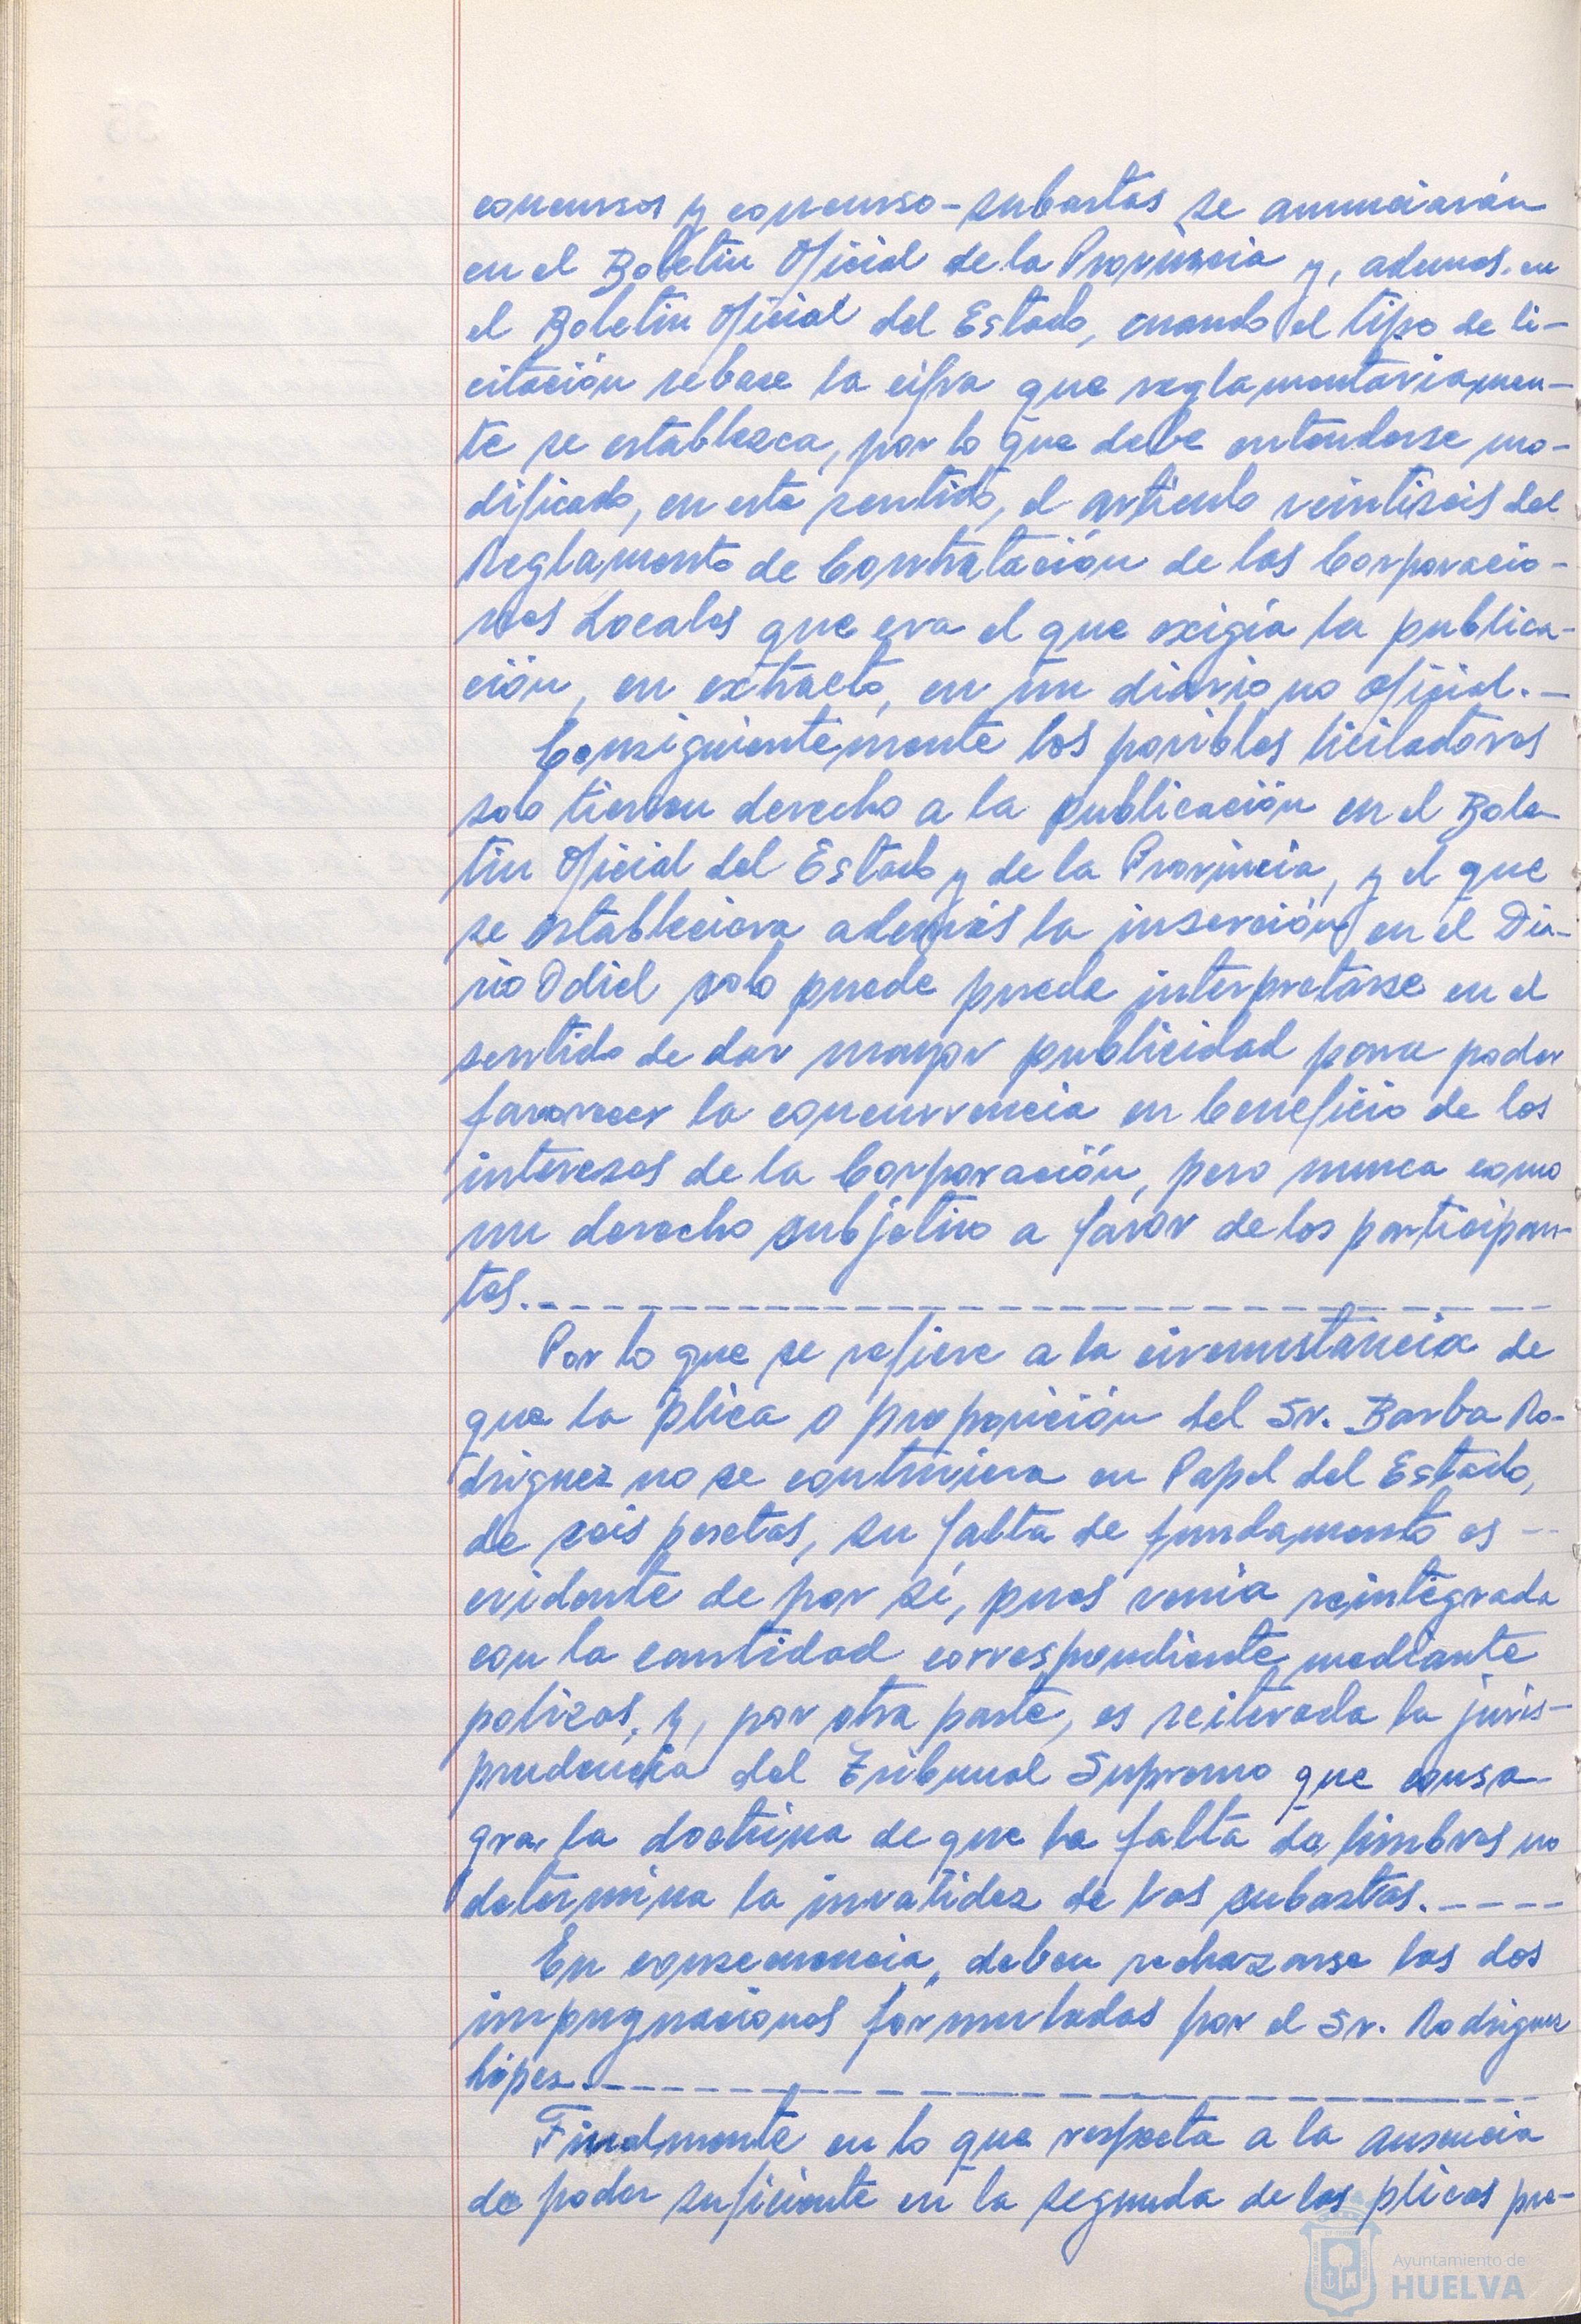 concursos y concurso-subastas se anunciarán
en el Boletin Oficial de la Provincia y, ademas. en
el Boletin Oficial del Estado, cuando el tipo de li-
citación rebase la cifra que reglamentariamen-
te se establezca, por lo que debe entenderse mo-
dificado, en este sentido, el artículo veintiseis del
Reglamento de Contratación de las Corporacio-
nes Locales que era el que exigía la publica-
ción, en extracto, en un diario no oficial.-
Consiguientemente los posibles licitadores
solo tienen derecho a la publicación en el Bole-
tin Oficial del Estado y de la Provincia, y el que
se estableciera además la inserción en el Dia-
rio Odiel solo puede puede interpretarse en el
sentido de dar mayor publicidad para poder
favorecer la concurrencia en beneficio de los
intereses de la Corporación, pero nunca como
un derecho subjetivo a favor de los participan-
tes.-
Por lo que se refiere a la circunstancia de
que la plica o proposición del Sr. Barba Ro-
driguez no se contuviera en Papel del Estado,
de seis pesetas, su falta de fundamento es --
evidente de por sí, pues venia reintegrada
con la cantidad correspondiente mediante
polizas, y, por otra parte, es reiterada la juris-
prudencia del Tribunal Supremo que consa-
gra la doctrina de que la falta de timbres no
determina la invalidez de las subastas.----
En consecuencia, deben rechazarse las dos
impugnaciones formuladas por el Sr. Rodriguez
López.-
Finalmente en lo que respecta a la ausencia
de poder suficiente en la segunda de las plicas pre-
Ayuntamiento de
HUELVA